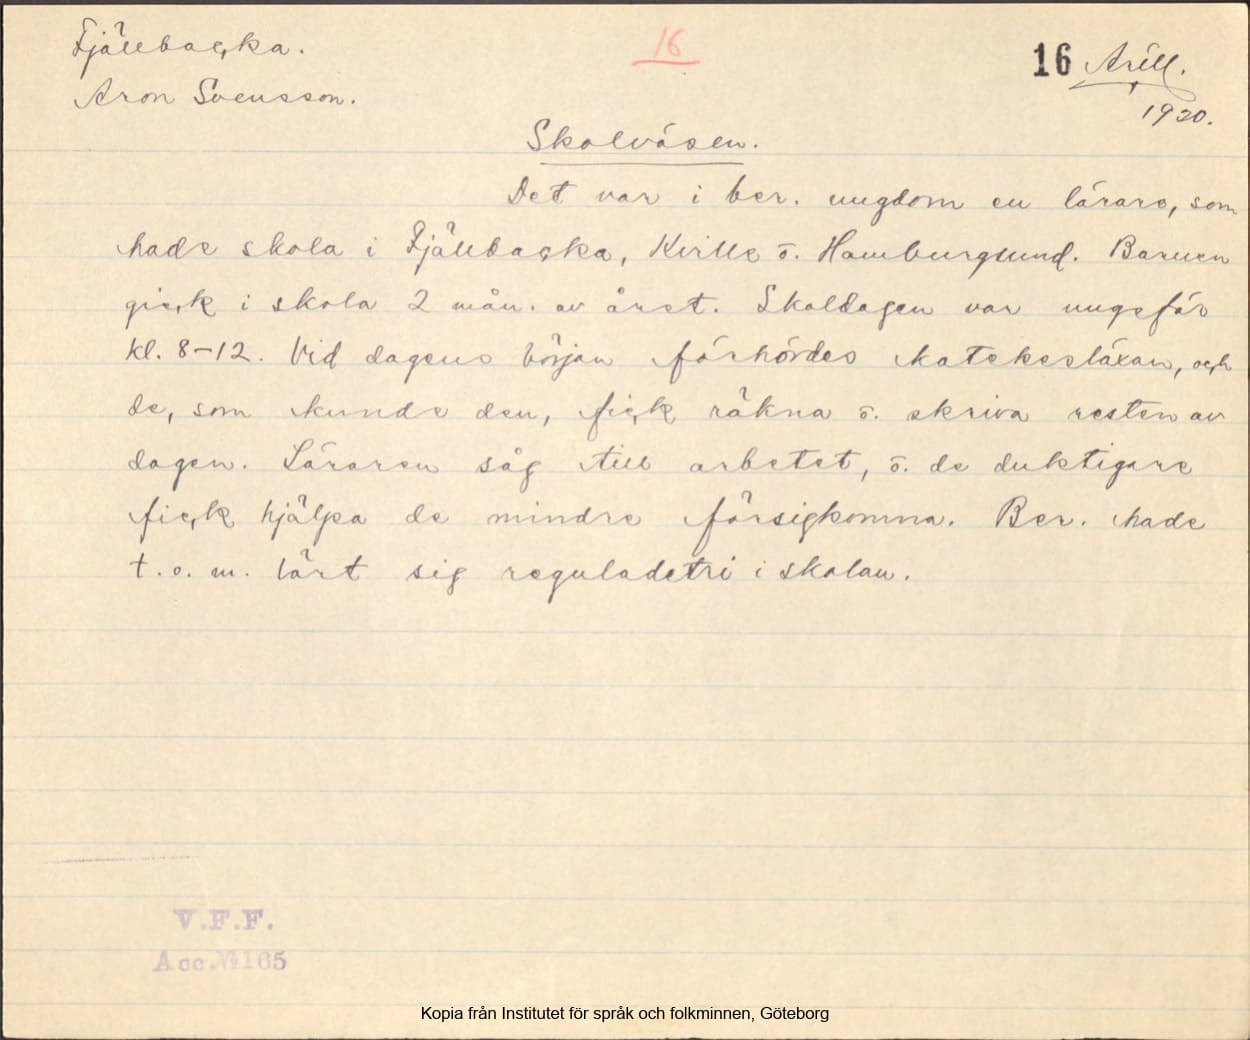 Fjällbacka.
16
16 Arill.
Aron Svensson.
1920.
Skolväsen.
Det var i ber. ungdom en lärare, som
hade skola i Fjällbacka, Kville o. Hamburgsund. Barnen
gick i skola 2 mån. av året. Skoldagen var ungefär
kl. 8-12. Vid dagens början förhördes katekesläxan, och
de, som kunde den, fick räkna o. skriva resten av
dagen. Läraren såg till arbetet, o. de duktigare
fick hjälpa de mindre försigkomna. Ber. hade
t.o.m. lärt sig reguladetri i skolan.
V.F.F.
Acc.№165
Kopia från Institutet för språk och folkminnen, Göteborg